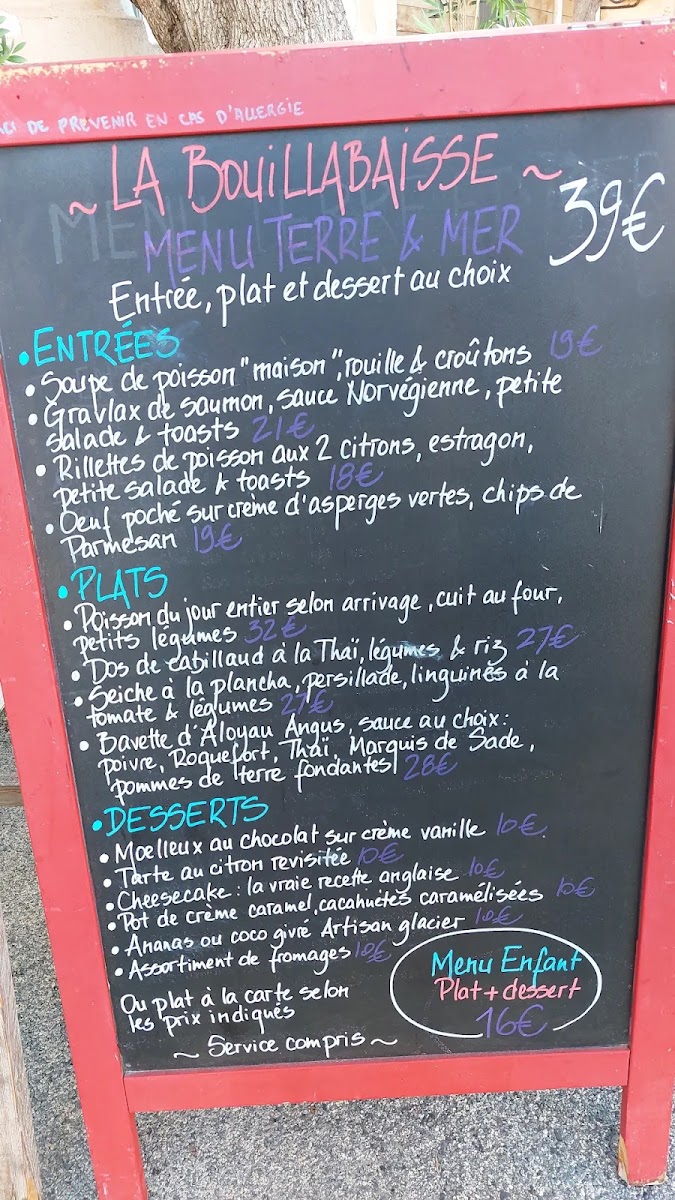 DE PREVENIR EN CAS D'ALLERGIE
~ LA BOUILLABAISSE ~
MENU TERRE & MER 39€
Entrée, plat et dessert au choix
• ENTRÉES
• Soupe de poisson "maison", rouille & croûtons 19€
• Gravlax de saumon, sauce Norvégienne, petite
salade & toasts 21€
• Rillettes de poisson aux 2 citrons, estragon,
petite salade & toasts 18€
• Oeuf poché sur crème d'asperges vertes, chips de
Parmesan 19€
• PLATS
• Poisson du jour entier selon arrivage, cuit au four,
petits légumes 32€
• Dos de cabillaud à la Thaï, légumes & riz 27€
• Seiche à la plancha, persillade, linguines à la
tomate & légumes 27€
• Bavette d'Aloyau Angus, sauce au choix:
poivre, Roquefort, Thaï, Marquis de Sade,
pommes de terre fondantes 28€
• DESSERTS
• Moelleux au chocolat sur crème vanille 10€.
• Tarte au citron revisitée 10€
• Cheesecake: la vraie recette anglaise 10€
• Pot de crème caramel, cacahuètes caramélisées 10€
• Ananas ou coco givré Artisan glacier 10€
• Assortiment de fromages 10€
Ou plat à la carte selon
les prix indiqués
~ Service compris ~
Menu Enfant
Plat + dessert
16€